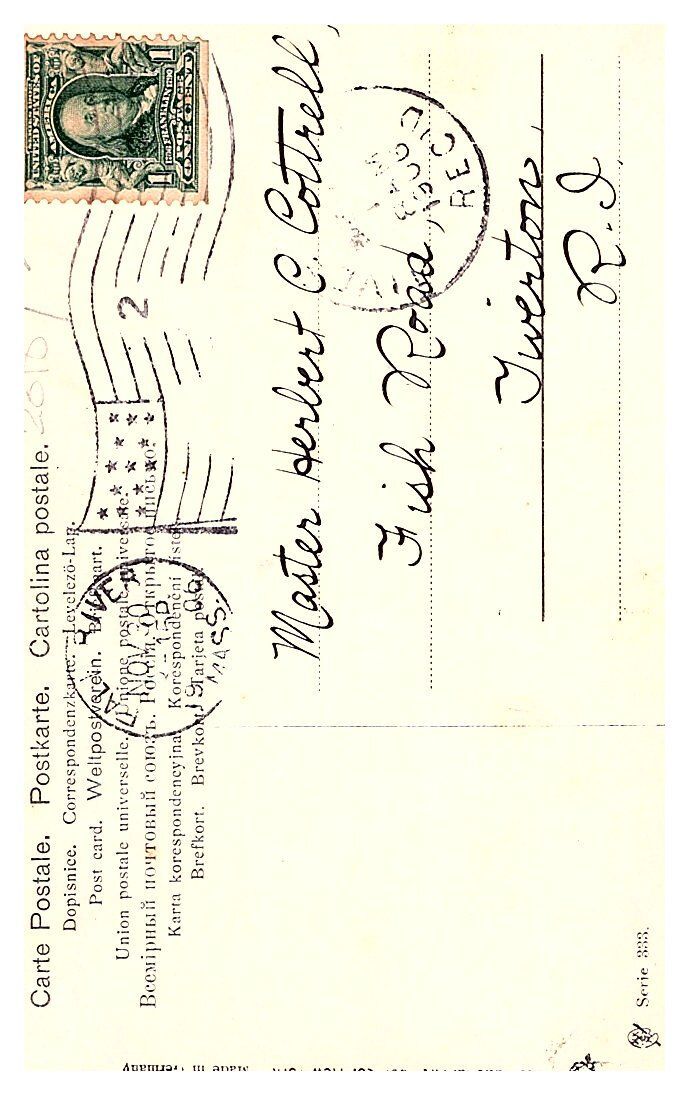 Carte Postale. Postkarte. Cartolina postale.
Dopisnice. Correspondenzkarte. Levelező-Lap.
Post card. Weltpostverein.
Union postale universelle. Unione postale universale.
Всемірный почтовый союзъ. Россія. Открытое письмо.
Karta korespondencyjna. Korespondenční lístek.
Brefkort. Brevkort. Tarjeta postal.
RIVER
NOV 30
MASS.
2
UNITED STATES OF
AMERICA
FRANKLIN
ONE CENT
1 1
Master Herbert C. Cottrell,
Fish Road,
Tiverton,
R.I.
REC'D
Serie 333.
Made in Germany